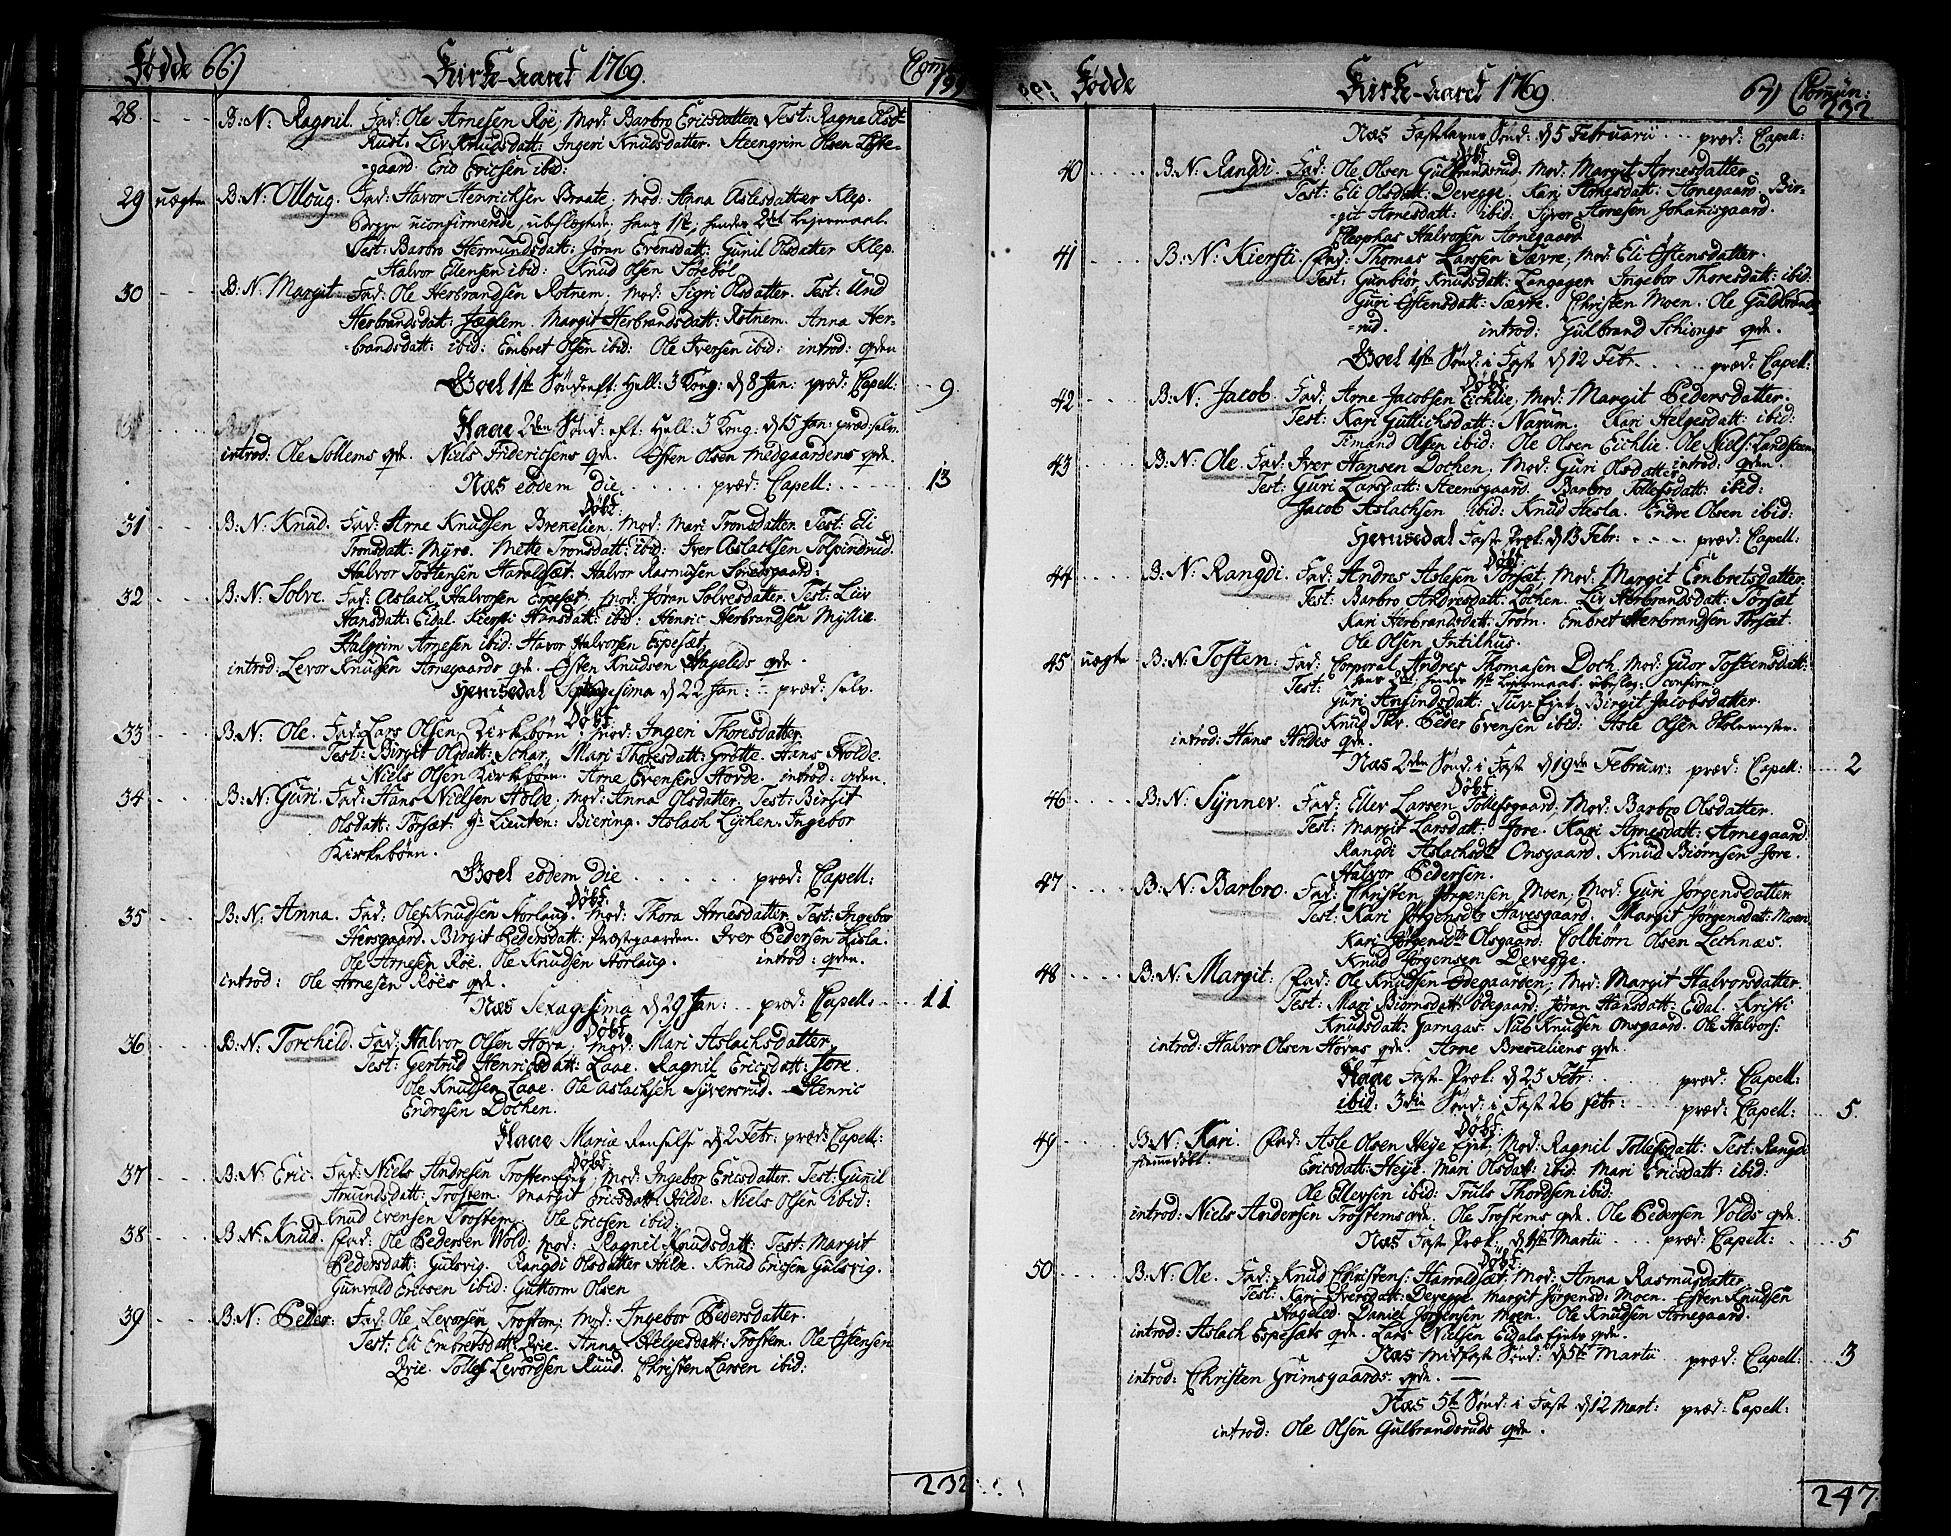 Fødde 66) Kirke-Aaret 1769. Com: 199
28. B: N: Ragnil. Fad: Ole Arnesen Röe, Mod: Barbro Ericsdatter. Test: Ragna Olsd:
Rust. Liv Knudsdatt: Ingeri Knudsdatter. Steengrim Olsen
-gaard. Eric Ericsen ibid:
29 uægte B: N: Olloug. Fad: Havor Henricksen Braate, Mod: Anna Aslesdatter Klep.
Begge uconfirmerede, ubeslegtede, hans 1ste, hendes 2det Lejermaal.
Test: Barbro Hermundsdatt: Jøran Evensdatt: Gunil Olsdatter Klep.
Halvor Ellensen ibid: Knud Olsen Torebøl
30 B: N: Margit. Fad: Ole Herbrandsen Rotnem, Mod: Sigri Olsdatter. Test: Und
Herbrandsdatt: Foglem. Margit Herbrandsdatt: Rotnem. Anna Her-
brandsdatt: ibid: Embret Olsen ibid: Ole Iversen ibid: introd: qvden
Goel 1ste Sønd: eft: Hell: 3 Kong: d 8 Jan: præd: Capell: 9
Aal 2den Sønd: eft: Hell: 3 Kong: d 15 Jan: præd: selv.
introd: Ole Sollems qvde. Niels Fridericsens qvde. Østen Olsen Medgaardens qvde.
Næs eodem Die præd: Capell: 13
Døbt:
31 B: N: Knud. Fad: Arne Knudsen Brenelien. Mod: Mari Tronsdatter. Test: Eli
Tronsdatt: Myre. Mette Tronsdatt: ibid: Iver Aslachsen Tolpindrud.
Halvor Tostensen Haraldsæt. Halvor Rasmusen Sørensgaard.
32 B: N: Solve. Fad: Aslach Halvorsen Espeset. Mod: Jøran Solvesdatter. Test: Liv
Hansdatt: Eidal. Kiersti Hansdatt: ibid: Henric Herbrandsen Myhlie
Halgrim Arnesen ibid: Havor Halvorsen Espesæt.
introd: Levor Knudsen Arnegaards qvde. Østen Knudsen Hagelds qvde.
Hemsedal Septuagesima d 22 Jan: præd: selv.
Døbt:
33 B: N: Ole. Fad: Lars Olsen Kirkebøen. Mod: Ingeri Thoresdatter
Test: Birgit Olsdatt: Schar. Mari Thoresdatt: Grøtte. Hans Holde.
Niels Olsen Kirkebøen. Arne Evensen Hovde. introd: qvden.
34 B: N: Guri. Fad: Hans Nielsen Holde, Mod: Anna Olsdatter. Test: Birgit
Olsdatt: Torsæt. Lieuten: Biering. Aslach Lychen. Ingebor
Kirkebøen.
Goel eodem Die præd: Capell:
Døbt:
35 B: N: Anna. Fad: Ole Knudsen Storlaug. Mod: Thora Arnesdatter. Test: Ingebor
Hersgaard. Birgit Pedersdatt: Præstegaarden. Iver Pedersen Hisla.
Ole Arnesen Röe. Ole Knudsen Storlaug. introd: qvden.
introd: Ole Arnesen Röes qvde.
Næs Sexagesima d 29 Jan: præd: Capell: 11
Døbt:
36 B: N: Torchild. Fad: Halvor Olsen Hova. Mod: Mari Aslachsdatter
Test: Gertrud Henricsdatt: Laae. Ragnil Ericsdatt: Jore.
Ole Knudsen Laae. Ole Aslachsen Syversrud. Henric
Endresen Dochen.
Aal Mariæ Renselse d 2 Febr: præd: Capell:
Døbt:
37 B: N: Eric. Fad: Niels Andresen Trostem, Mod: Ingebor Ericsdatter. Test: Gunil
Amundsdatt: Trostem. Margit Ericsdatt: Hilde. Niels Olsen ibid:
Knud Evensen Trostem. Ole Ericsen ibid.
38 B: N: Knud. Fad: Ole Pedersen Wold. Mod: Ragnil Knudsdatt: Test: Margit
Pedersdatt: Gulsvig. Rangdi Olsdatter Hilde. Knud Ericsen Gulsvig.
Gunvald Ericsen ibid: Guttorm Olsen
39 B: N: Peder. Fad: Ole Levorsen Trostem, Mod: Ingebor Pedersdatter.
Test: Eli Embretsdatt: Brie. Anna Helgesdatt: Trostem. Ole Østensen
Brie. Tollef Levordsen Ruud. Christen Larsen ibid:
232
Fødde Kirke-Aaret 1769 67) Comun: 232
Næs Fastelavns Sønd: d 5 Februarii præd: Capell:
Døbt:
40 B: N: Rangdi. Fad: Ole Olsen Gulbrandsrud. Mod: Margit Arnesdatter.
Test: Eli Olsdatt: Devegge. Kari Arnesdatt: Arnegaard. Bir-
-git Arnesdatt: ibid: Syver Arnesen Johansgaard.
Cleophas Halvorsen Arnegaard
41 B: N: Kiersti. Fad: Thomas Larsen Sævre, Mod: Eli Østensdatter.
Test: Gunbiør Knudsdatt: Langagen. Ingebor Thoresdatt: ibid:
Guri Østensdatt: Sævre. Christen Moen. Ole Gulbrands-
-rud. introd: Gulbrand Schiongs qvde.
Goel 1ste Sønd: i Fast d 12 Febr. præd: Capell:
Døbt:
42 B: N: Jacob. Fad: Arne Jacobsen Eichlie, Mod: Margit Pedersdatter.
Test: Kari Guttichsdatt: Narum. Kari Helgesdatt: ibid:
Timand Olsen ibid: Ole Olsen Eichlie. Ole Niels: Landsteen
introd: qvden.
43 B: N: Ole. Fad: Iver Hansen Dochen, Mod: Guri Olsdatter
Test: Guri Larsdatt: Steensgaard. Barbro Tollefsdatt: ibid:
Jacob Aslachsen ibid: Knud Hesla. Endre Olsen ibid:
Hemsedal Faste Præk: d 13 Febr: præd: Capell:
Døbt:
44 B: N: Rangdi. Fad: Andres Aslesen Torsæt, Mod: Margit Embretsdatter.
Test: Barbro Andresdatt: Lochen. Liv Herbrandsdatt: Torsæt
Kari Herbrandsdatt: Trøm. Embret Herbrandsen Torsæt.
Ole Olsen Intilhus.
45 uægte B: N: Tosten. Fad: Corporal Andres Thomasen Doch. Mod: Guor Tostensdatt:
Test: hans 2det hendes 1ste Lejermaal. ubeslegt: confirm:
Guri Amundsdatt: Tuv-Ejet. Birgit Jacobsdatter
Knud Tuv. Peder Evensen ibid: Asle Olsen
introd: Hans Holdes qvde.
Næs 2den Sønd: i Fast d 19de Februar: præd: Capell: 2
Døbt:
46 B: N: Synnev. Fad: Ellev Larsen Tollefsgaard, Mod: Barbro Olsdatter.
Test: Margit Larsdatt: Jore. Kari Arnesdatt: Arnegaard.
Rangdi Aslachsdtr Onsgaard. Knud Biørnsen Jore.
Halvor Pedersen.
47 B: N: Barbro. Fad: Christen Jørgensen Moen, Mod: Guri Jørgensdatter
Test: Kari Jørgensdtr Havesgaard. Margit Jørgensdat: Moen.
Kari Jørgensdtr Olsgaard. Colbiørn Olsen Lechnæs.
Knud Jørgensen Devegge.
48 B: N: Margit. Fad: Ole Knudsen Ødegaarden, Mod: Margit Halvorsdatter.
Test: Mari Biørnsdatt: Ødegaard. Jøran Hansdatt: Eidal. Kristi
Knudsdatt: Garnaas. Nils Knudsen Onsgaard. Ole Halvors:
introd: Halvor Olsen Hovas qvde. Arne Breneliens qvde.
Aal Faste Præk: d 25 Febr: præd: Capell:
ibid: 3die Sønd: i Fast 26 Febr: præd: Capell: 5.
Døbt:
49 B: N: Kari. Fad: Asle Olsen Heje Ejet, Mod: Ragnil Tollefsdatt: Test: Rangdi
hiemmedøbt. Ericsdatt: Heje. Mari Olsdatt: ibid: Mari Ericsdatt: ibid:
Ole Ellevsen ibid: Truls Thordsen ibid:
introd: Niels Andersen Trostems qvde. Ole Trostems qvde. Ole Pedersen Volds qvde.
Næs Faste Præk: d 1ste Martii præd: Capell: 5
Døbt:
50 B: N: Ole. Fad: Knud Christens: Harraldsæt. Mod: Anna Rasmusdatter.
Test: Kari Iversdatt: Devegge. Margit Jørgensd: Moen. Østen Knudsen
Hageled. Daniel Jørgensen Moen. Ole Knudsen Arnegaard.
introd: Aslach Espesæts qvde. Lars Nielsen Eidals Ejets qvde.
Næs Midfaste Sønd: d 5te Martii præd: Capell: 3
introd: Christen Grimsgaards qvde.
Næs 5te Sønd: i Fast d 12 Mart: præd: Capell:
introd: Ole Olsen Gulbrandsruds qvde.
247.